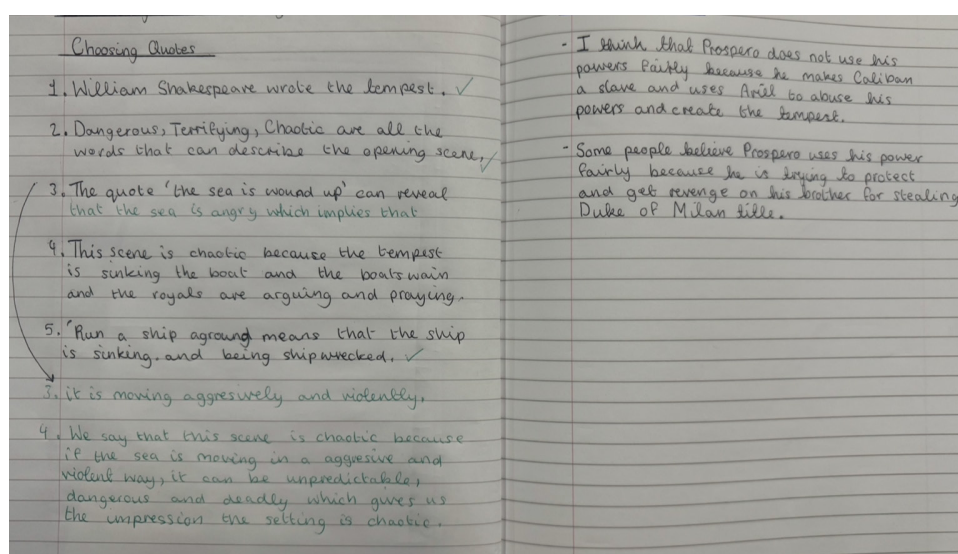 Choosing Quotes
1. William Shakespeare wrote the tempest. ✓
2. Dangerous, Terrifying, Chaotic are all the
words that can describe the opening scene. ✓
3. The quote 'the sea is wound up' can reveal
that the sea is angry which implies that
4. This scene is chaotic because the tempest
is sinking the boat and the boatswain
and the royals are arguing and praying.
5. 'Run a ship aground means that the ship
is sinking. and being shipwrecked. ✓
3. it is moving aggresively and violently,
4. We say that this scene is chaotic because
if the sea is moving in a aggresive and
violent way, it can be unpredictable,
dangerous and deadly which gives us
the impression the setting is chaotic.
- I think that Prospero does not use his
powers fairly because he makes Caliban
a slave and uses Ariel to abuse his
powers and create the tempest.
- Some people believe Prospero uses his power
fairly because he is trying to protect
and get revenge on his brother for stealing
Duke of Milan title.